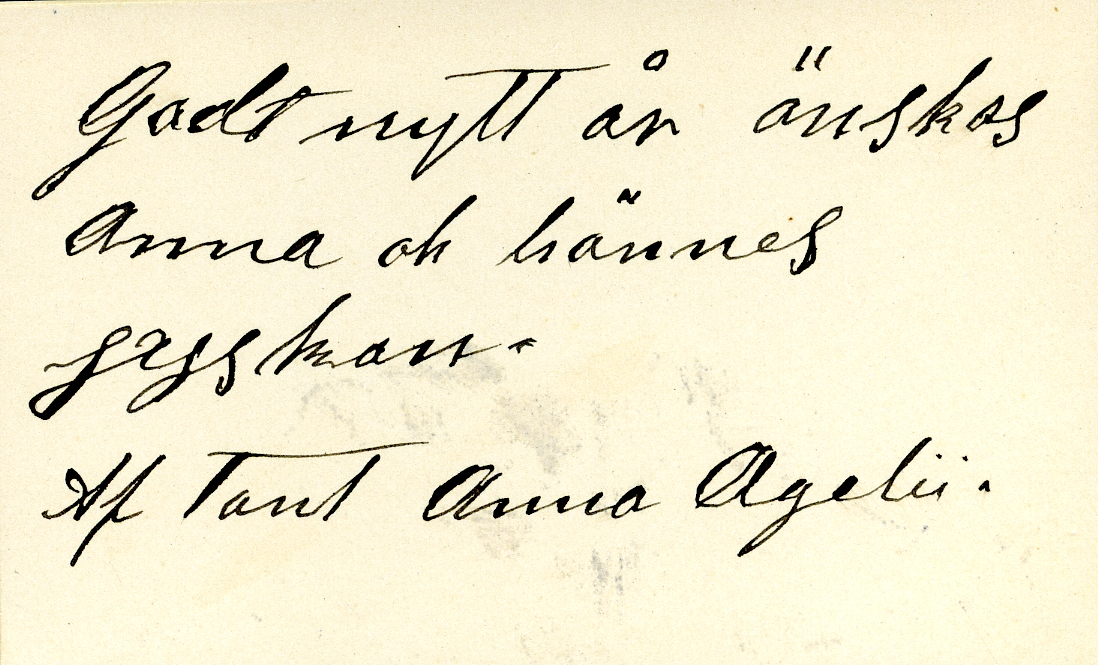 Godt nytt år önskas
Anna ok hännes
syskon.
Af Tant Anna Agelii.